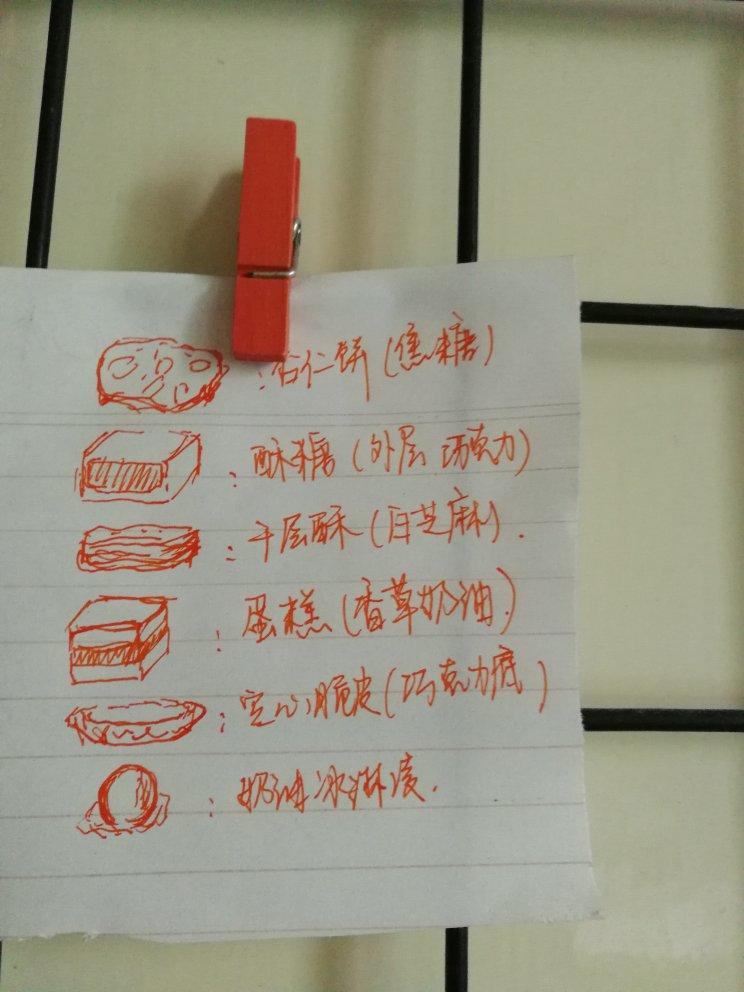 ：杏仁饼（焦糖）
：酥糖（外层巧克力）
：千层酥（白芝麻）.
：蛋糕（香草奶油）
：空心脆皮（巧克力底）
：奶油冰淇凌.